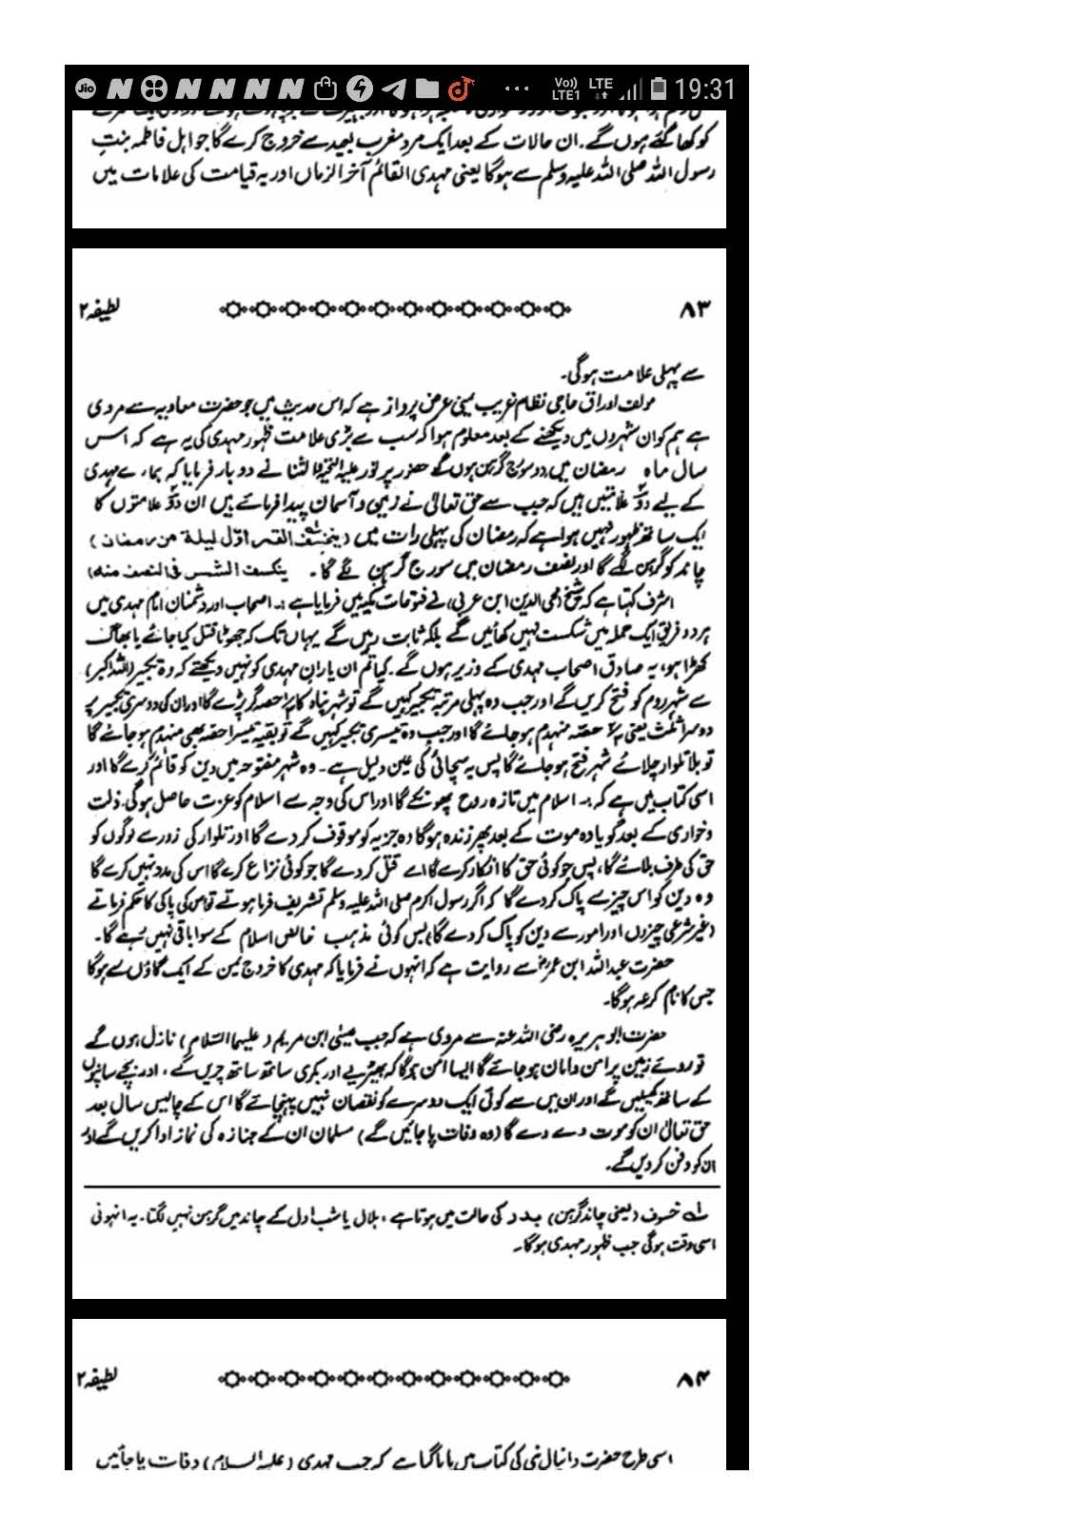 19:31
کو کھا گئے ہوں گے۔ ان حالات کے بعد ایک مرد مغرب بعید سے خروج کرے گا جو اہل فاطمہ بنتِ
رسول اللہ صلی اللہ علیہ وسلم سے ہوگا یعنی مہدی القائم آخر الزماں اور یہ قیامت کی علامات میں
۸۳
لطیفہ ۲
سے پہلی علامت ہوگی۔
مولف اوراق حاجی نظام غریب یمنی عرض پرداز ہے کہ اس حدیث میں جو حضرت معاویہ سے مروی
ہے ہم کو ان شہروں میں دیکھنے کے بعد معلوم ہوا کہ سب سے بڑی علامت ظہور مہدی کی یہ ہے کہ اس
سال ماہ رمضان میں دو سورج گرہن ہوں گے حضور پر نور علیہ التحیۃ والثنا نے دو بار فرمایا کہ ہمارے مہدی
کے لیے دو علامتیں ہیں کہ جب سے حق تعالٰی نے زمین و آسمان پیدا فرمائے ہیں ان دو علامتوں کا
ایک ساتھ ظہور نہیں ہوا ہے کہ رمضان کی پہلی رات میں (ینخسف القمر اول لیلة من رمضان)
چاند کو گرہن لگے گا اور نصف رمضان میں سورج گرہن لگے گا۔ ینکسف الشمس فی النصف منه)
اشرف کہتا ہے کہ شیخ (محی الدین ابن عربی) نے فتوحات مکیہ میں فرمایا ہے :۔ اصحاب اور دشمنان امام مہدی میں
ہر دو فریق ایک حملہ میں شکست نہیں کھائیں گے بلکہ ثابت رہیں گے یہاں تک کہ جھوٹا قتل کیا جائے یا بھاگ
کھڑا ہو، یہ صادق اصحاب مہدی کے وزیر ہوں گے۔ کیا تم ان یاران مہدی کو نہیں دیکھتے کہ وہ تکبیر (اللہ اکبر)
سے شہر روم کو فتح کریں گے اور جب وہ پہلی مرتبہ تکبیر کہیں گے تو شہر پناہ کا حصہ گر پڑے گا اور ان کی دوسری تکبیر پر
دوسرا ثلث یعنی حصہ منہدم ہو جائے گا اور جب وہ تیسری تکبیر کہیں گے تو بقیہ تیسرا حصہ بھی منہدم ہو جائے گا
تو بلا تلوار چلائے شہر فتح ہو جائے گا پس یہ سچائی کی عین دلیل ہے۔ وہ شہر مفتوحہ میں دین کو قائم کرے گا اور
اسی کتاب میں ہے کہ :۔ اسلام میں تازہ روح پھونکے گا اور اس کی وجہ سے اسلام کو عزت حاصل ہوگی۔ ذلت
و خواری کے بعد گویا وہ موت کے بعد پھر زندہ ہوگا وہ جزیہ کو موقوف کر دے گا اور تلوار کی زور سے لوگوں کو
حق کی طرف بلائے گا، پس جو کوئی حق کا انکار کرے گا اسے قتل کر دے گا جو کوئی نزاع کرے گا اس کی مدد نہیں کرے گا
وہ دین کو اس چیز سے پاک کر دے گا کہ اگر رسول اکرم صلی اللہ علیہ وسلم تشریف فرما ہوتے تو اس کی پاکی کا حکم فرماتے
(غیر شرعی چیزوں اور امور سے دین کو پاک کر دے گا) پس کوئی مذہب خالص اسلام کے سوا باقی نہیں رہے گا۔
حضرت عبد اللہ ابن عمرؓ سے روایت ہے کہ انہوں نے فرمایا کہ مہدی کا خروج یمن کے ایک گاؤں سے ہوگا
جس کا نام کرعہ ہوگا۔
حضرت ابو ہریرہ رضی اللہ عنہ سے مروی ہے کہ جب عیسٰی ابن مریم (علیہما السلام) نازل ہوں گے
تو روئے زمین پر امن و امان ہو جائے گا ایسا امن ہوگا کہ بھیڑیے اور بکری ساتھ ساتھ چریں گے، اور بچے سانپوں
کے ساتھ کھیلیں گے اور ان میں سے کوئی ایک دوسرے کو نقصان نہیں پہنچائے گا اس کے چالیس سال بعد
حق تعالٰی ان کو موت دے دے گا (وہ وفات پا جائیں گے) مسلمان ان کے جنازہ کی نماز ادا کریں گے اور
ان کو دفن کر دیں گے۔
لہ خسوف (یعنی چاند گرہن) بدر کی حالت میں ہوتا ہے، ہلال یا شب اول کے چاند میں گرہن نہیں لگتا۔ یہ انہونی
اسی وقت ہوگی جب ظہور مہدی ہوگا۔
۸۴
لطیفہ ۲
اسی طرح حضرت دانیال نبی کی کتاب میں پایا گیا ہے کہ جب مہدی (علیہ السلام) وفات پا جائیں